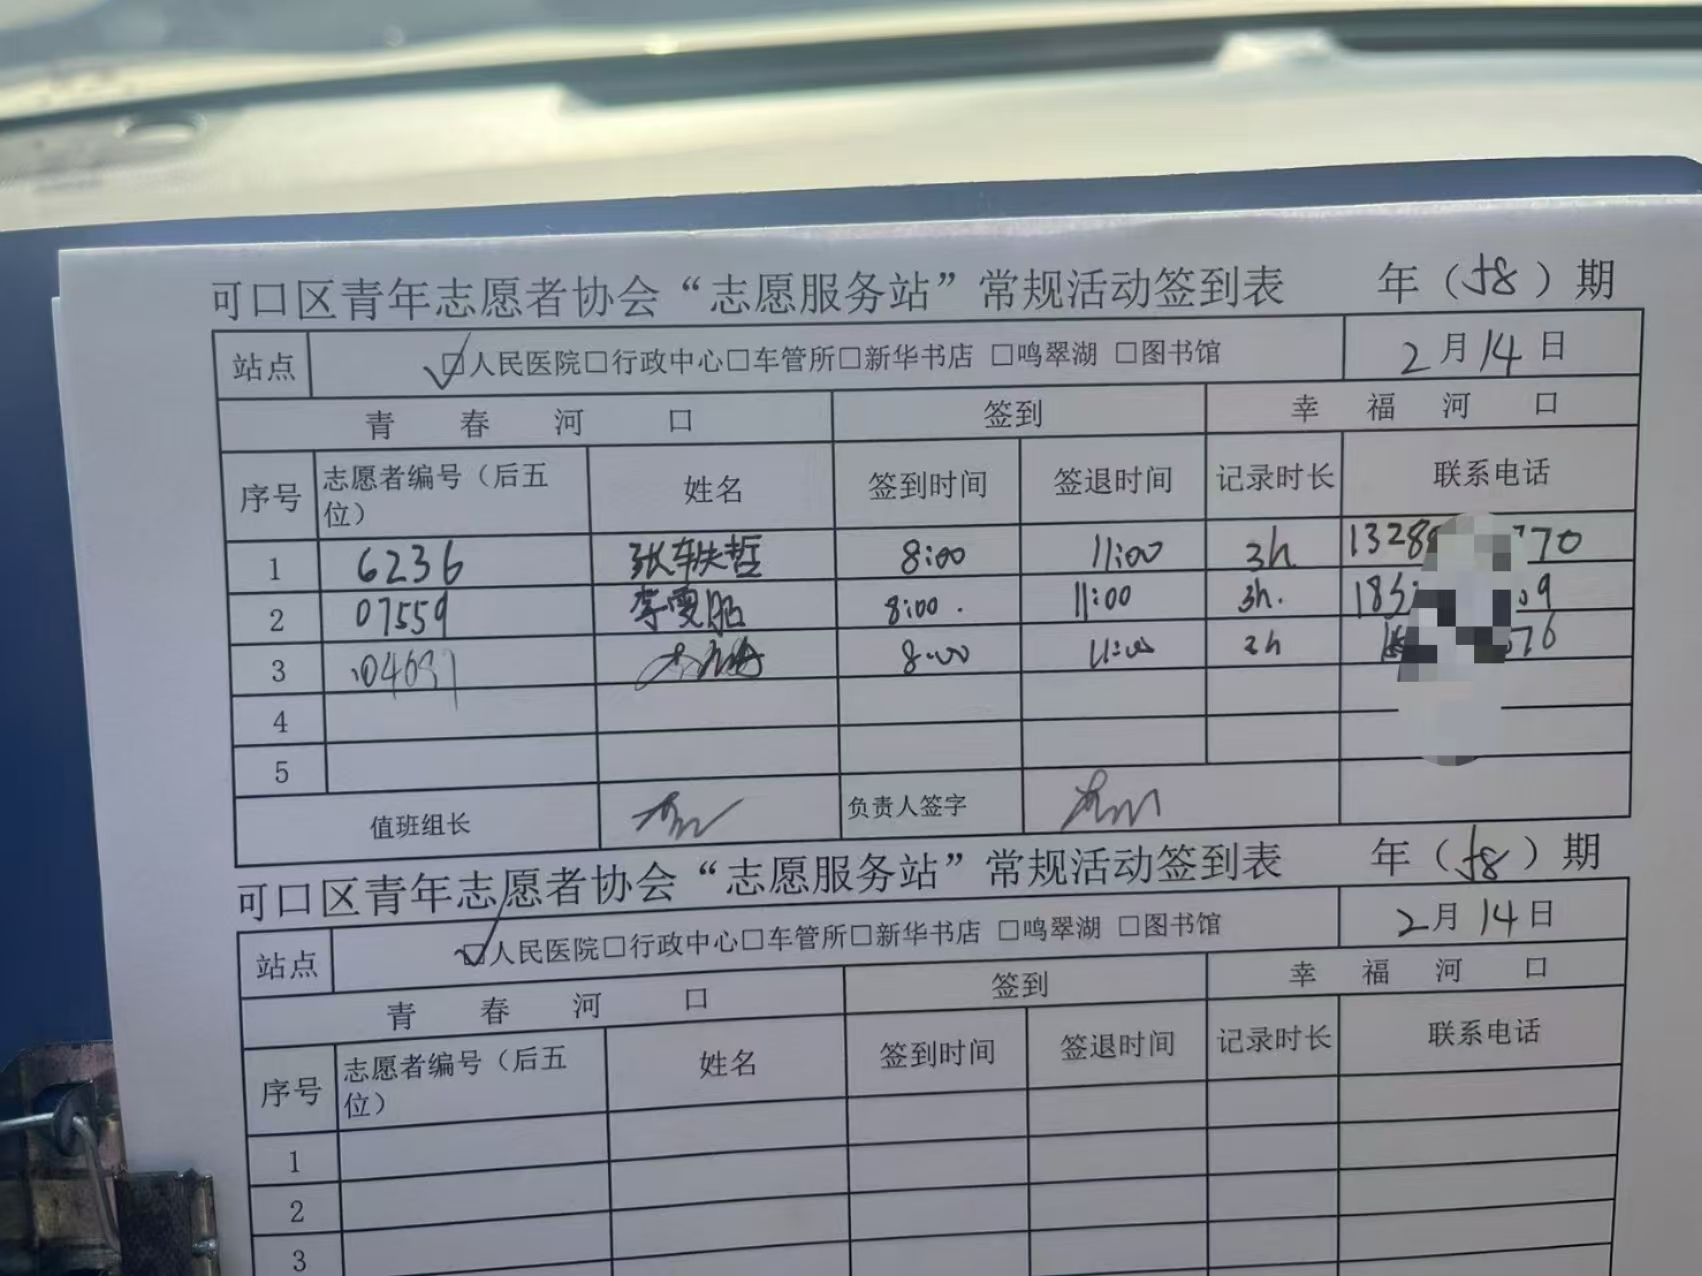 可口区青年志愿者协会“志愿服务站”常规活动签到表 年（58）期
站点 □人民医院□行政中心□车管所□新华书店 □鸣翠湖 □图书馆 2月14日
青 春 河 口 签到 幸 福 河 口
序号 志愿者编号（后五位） 姓名 签到时间 签退时间 记录时长 联系电话
1 6236 张轶哲 8:00 11:00 3h 1328 770
2 07559 李雯 8:00 11:00 3h. 183 09
3 8:00 11:00 3h 76
4
5
值班组长 负责人签字
可口区青年志愿者协会“志愿服务站”常规活动签到表 年（58）期
站点 □人民医院□行政中心□车管所□新华书店 □鸣翠湖 □图书馆 2月14日
青 春 河 口 签到 幸 福 河 口
序号 志愿者编号（后五位） 姓名 签到时间 签退时间 记录时长 联系电话
1
2
3